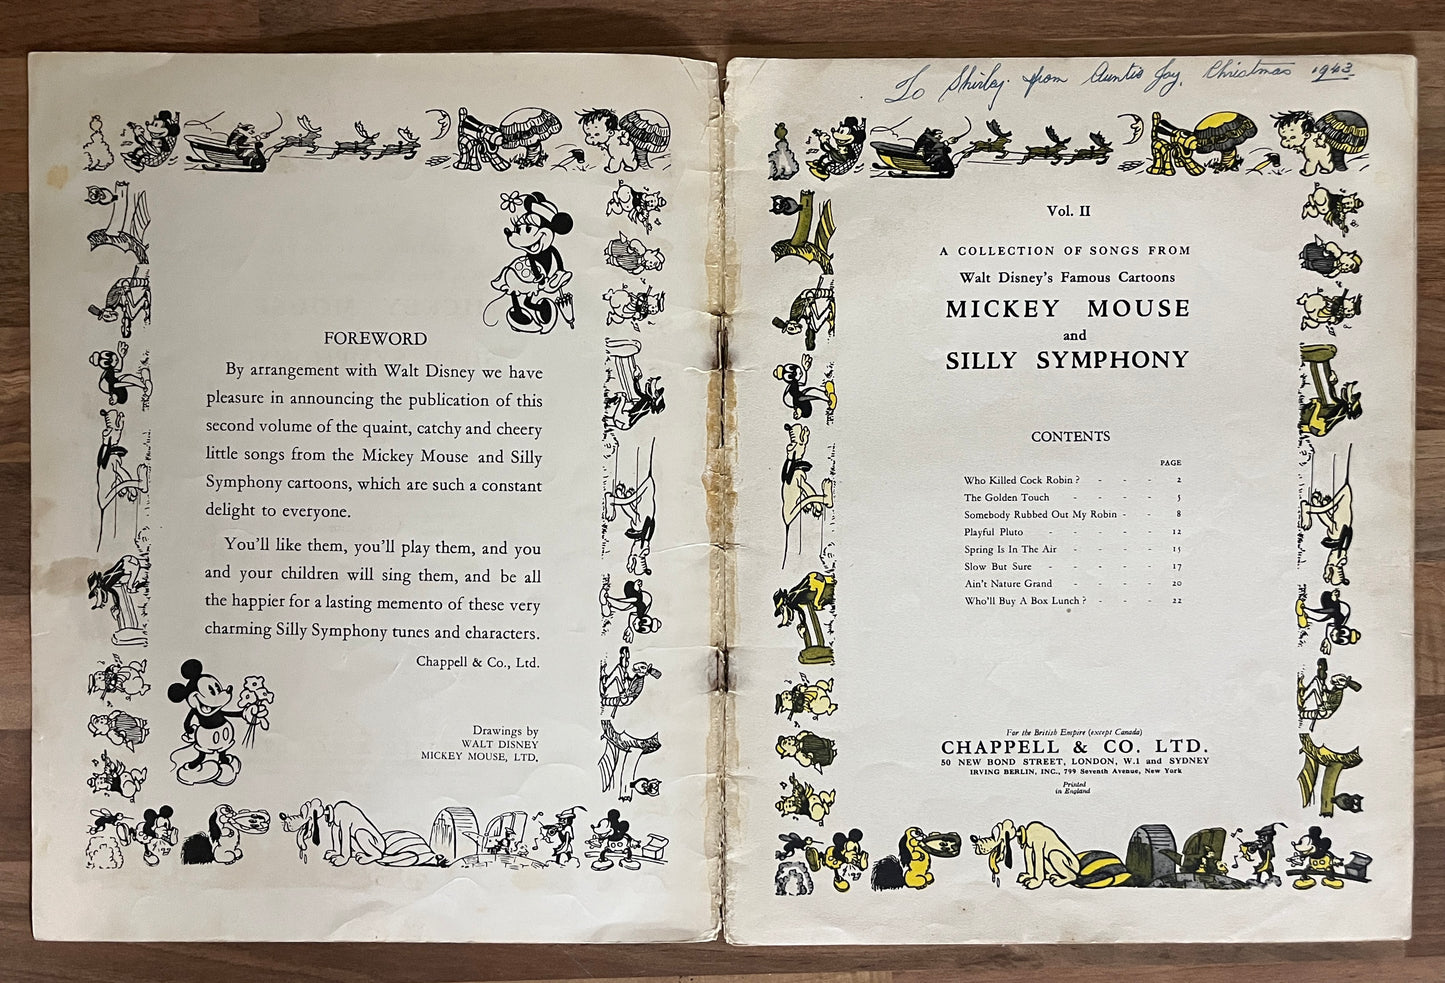 FOREWORD
By arrangement with Walt Disney we have
pleasure in announcing the publication of this
second volume of the quaint, catchy and cheery
little songs from the Mickey Mouse and Silly
Symphony cartoons, which are such a constant
delight to everyone.
You'll like them, you'll play them, and you
and your children will sing them, and be all
the happier for a lasting memento of these very
charming Silly Symphony tunes and characters.
Chappell & Co., Ltd.
Drawings by
WALT DISNEY
MICKEY MOUSE, LTD.
To Shirley from Auntie Joy, Christmas 1943
Vol. II
A COLLECTION OF SONGS FROM
Walt Disney's Famous Cartoons
MICKEY MOUSE
and
SILLY SYMPHONY
CONTENTS
PAGE
Who Killed Cock Robin? - - - 2
The Golden Touch - - - - 5
Somebody Rubbed Out My Robin - - 8
Playful Pluto - - - - - 12
Spring Is In The Air - - - - 15
Slow But Sure - - - - - 17
Ain't Nature Grand - - - - 20
Who'll Buy A Box Lunch? - - - 22
For the British Empire (except Canada)
CHAPPELL & CO. LTD.
50 NEW BOND STREET, LONDON, W.1 and SYDNEY
IRVING BERLIN, INC., 799 Seventh Avenue, New York
Printed
in England